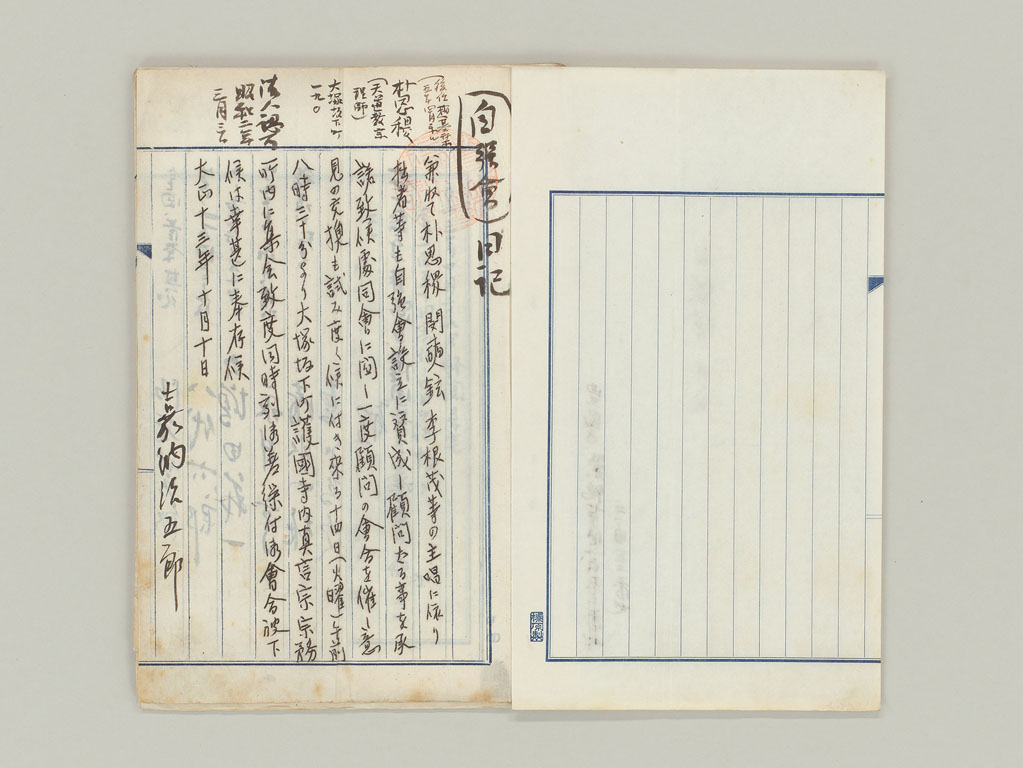 自強會日記
朴思稷
(天道教宗
理師)
大塚坂下町
一九〇
法人認可
昭和二年
三月三
兼ねて朴思稷 閔奭鉉 李根茂等の主唱に依り
拙者等も自強會設立に賛成し顧問たる事を承
諾致候處同會に関し一度顧問の會合を催し意
見の交換も試み度く候に付き来る十四日(火曜)午前
八時三十分より大塚坂下町護國寺内真言宗宗務
所内に集会致度同時刻御差繰付御會合被下
候は幸甚に奉存候
大正十三年十月十日
嘉納治五郎